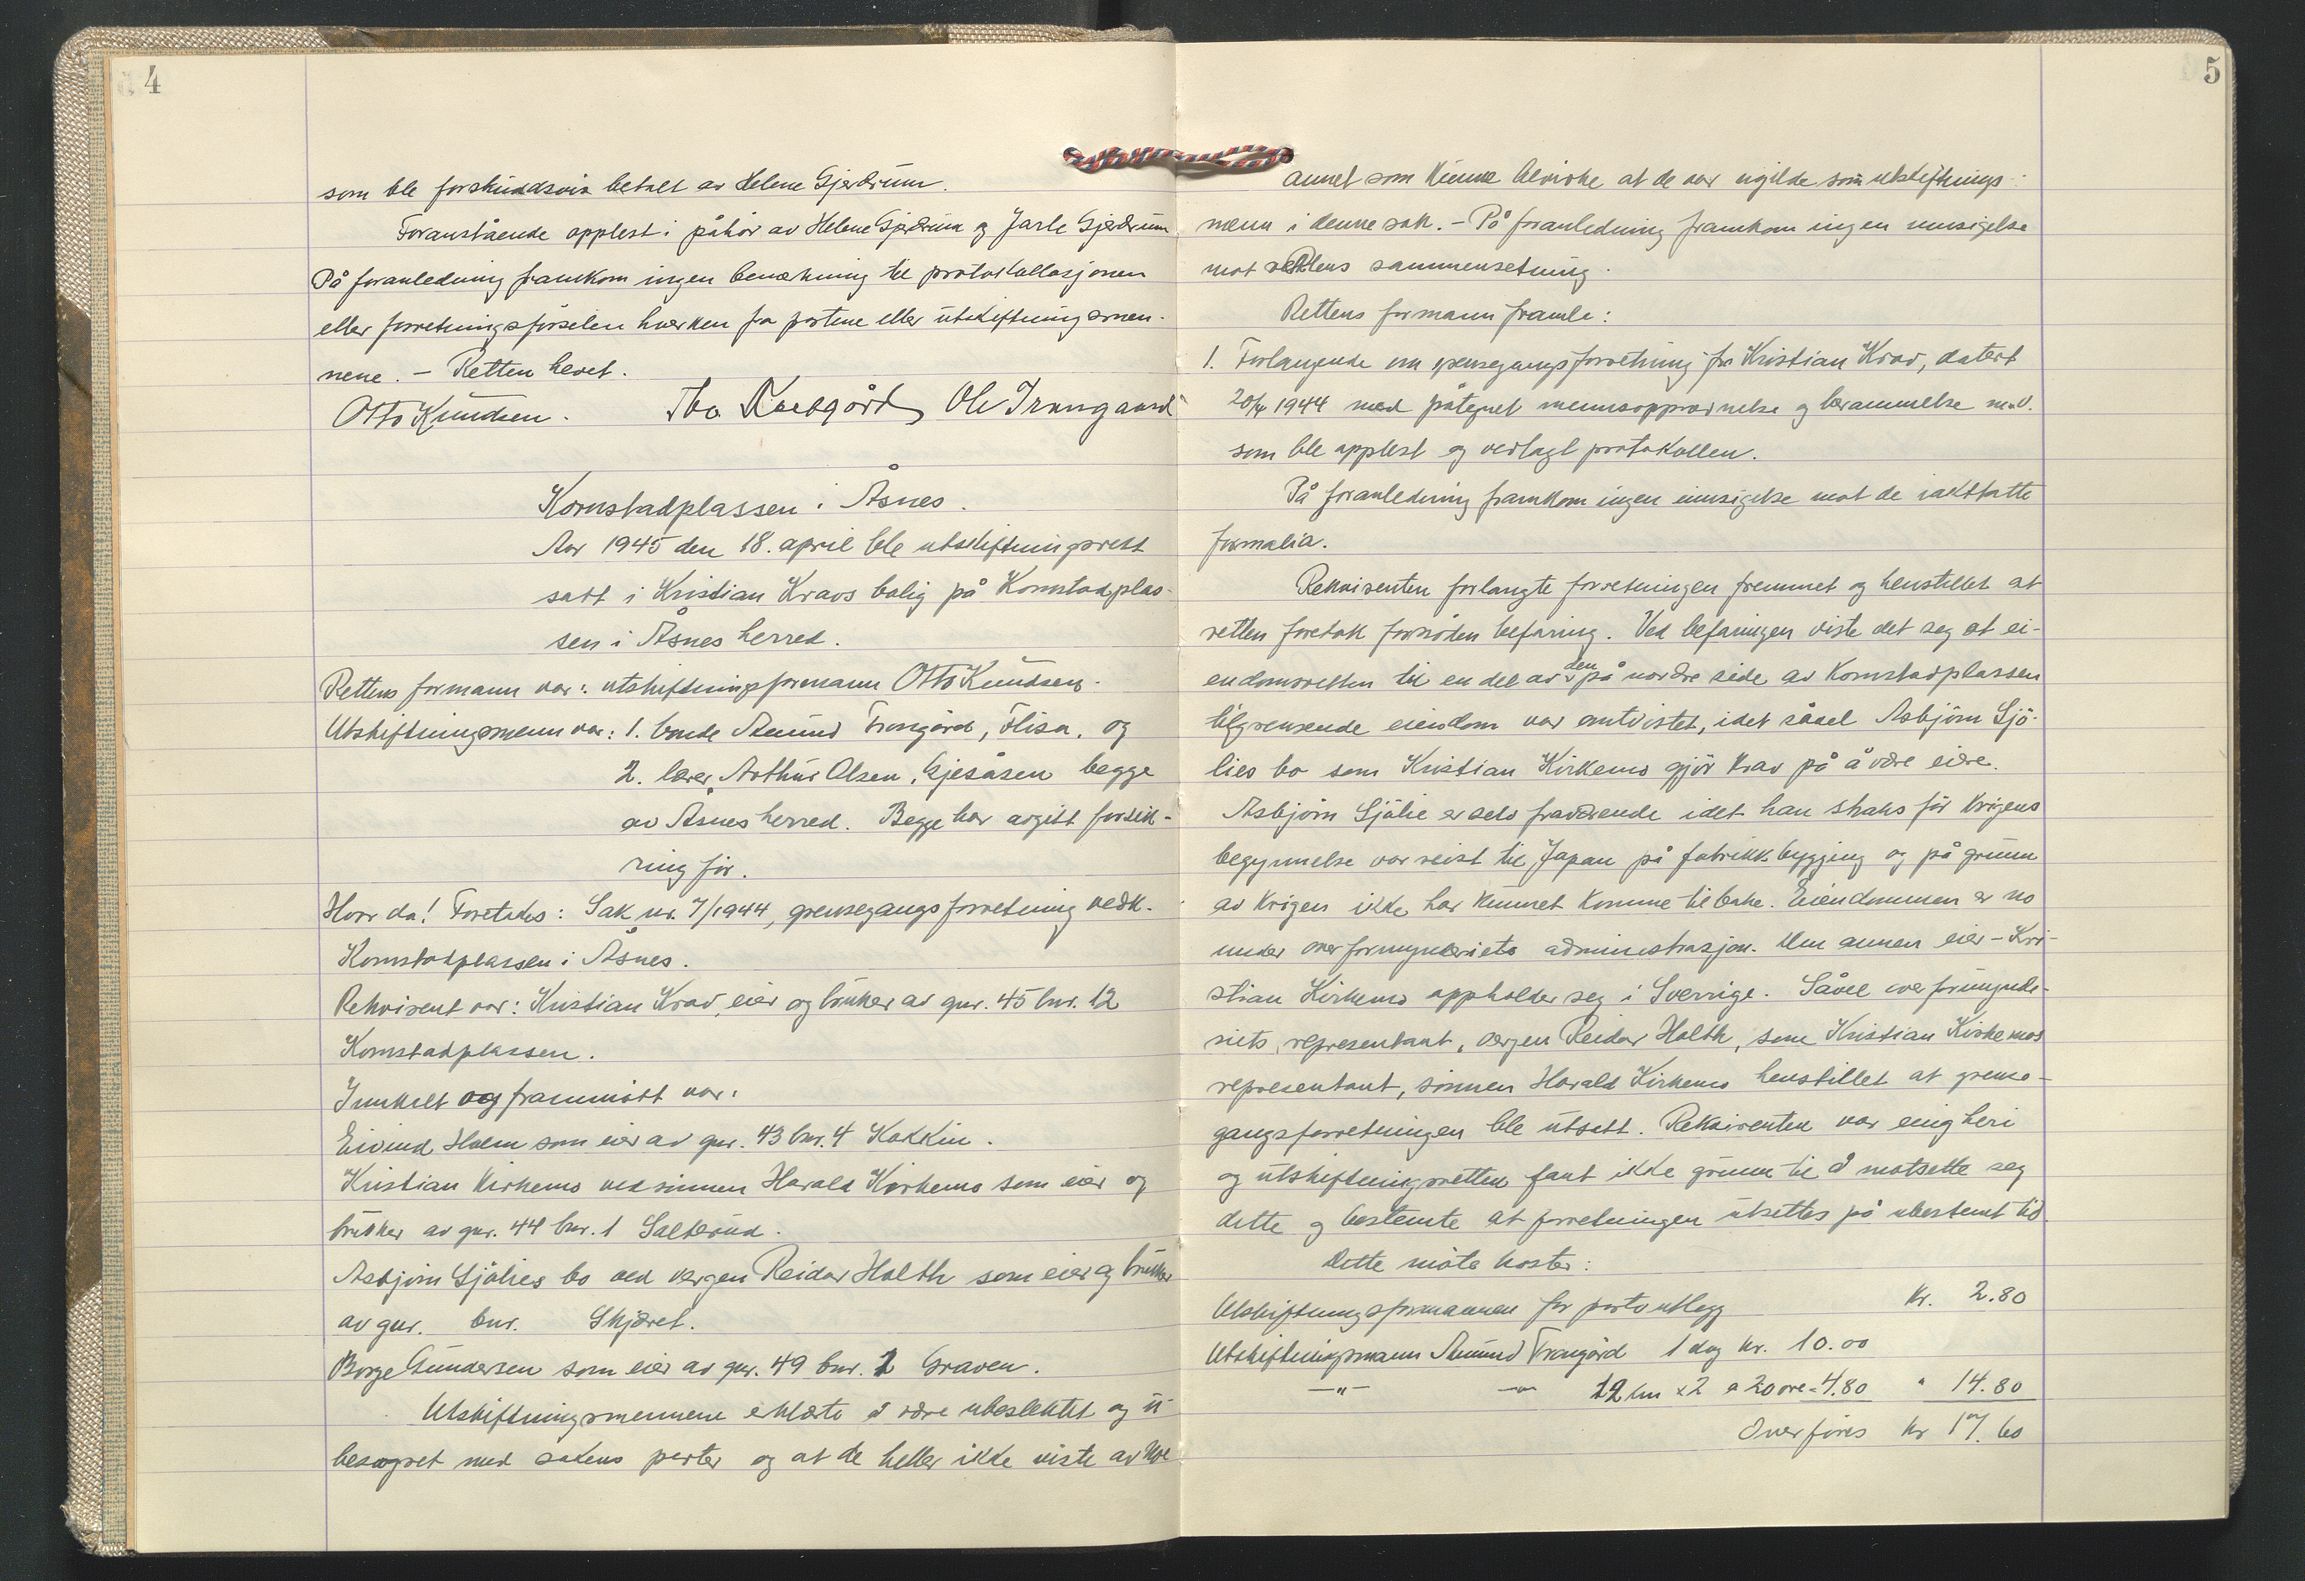 4
som ble forskuddsvis betalt av Helene Gjerdrum.
Foranstående opplest i påhör av Helene Gjerdrum og Jarle Gjerdrum
På foranledning framkom ingen bemerkning til protokollasjonen
eller forretningsförselen hverken fra partene eller utskiftningsmen-
nene. – Retten hevet.
Otto Knudsen. Ole Trangaard
Kornstadplassen i Åsnes.
Aar 1945 den 18. april ble utskiftningsrett
satt i Kristian Kravs bolig på Kornstadplas-
sen i Åsnes herred.
Rettens formann var: utskiftningsformann Otto Knudsen.
Utskiftningsmenn var: 1. bonde Amund Trangård, Flisa, og
2. lærer Arthur Olsen, Gjesåsen begge
av Åsnes herred. Begge har avgitt forsik-
ring för.
Hvor da! Foretokes: Sak nr. 7/1944, grensegangsforretning vedk.
Kornstadplassen i Åsnes.
Rekvirent var: Kristian Krav, eier og bruker av gnr. 45 bnr. 12
Kornstadplassen.
Innkalt og frammött var:
Eivind Holm som eier av gnr. 43 bnr. 4 Kokkin.
Kristian Kirkemo ved sönnen Harald Kirkemo som eier og
bruker av gnr. 44 bnr. 1 Salterud.
Asbjörn Sjölies bo ved vergen Reidar Holth som eier og bruker
av gnr. bnr. Skjæret.
Borge Gundersen som eier av gnr. 49 bnr. 1 Graven.
Utskiftningsmennene erklærte å være ubeslektet og u-
besvogret med sakens parter og at de heller ikke viste av noe
5
annet som kunne bevirke at de var ugilde som utskiftnings-
menn i denne sak. – På foranledning framkom ingen innsigelse
mot rettens sammensetning.
Rettens formann framla:
1. Forlangende om grensegangsforretning fra Kristian Krav, datert
20/4 1944 med påtegnet mennsoppnevnelse og berammelse m.v.
som ble opplest og vedlagt protokollen.
På foranledning framkom ingen innsigelse mot de iakttatte
formalia.
Rekvirenten forlangte forretningen fremmet og henstillet at
retten foretok fornöden befaring. Ved befaringen viste det seg at ei-
endomsretten til en del av den på nordre side av Kornstadplassen
tilgrensende eiendom var omtvistet, idet såvel Asbjörn Sjö-
lies bo som Kristian Kirkemo gjör krav på å være eiere.
Asbjörn Sjölie er selv fraværende idet han straks för krigens
begynnelse var reist til Japan på fabrikkbygging og på grunn
av krigen ikke har kunnet komme tilbake. Eiendommen er no
under overformynderiets administrasjon. Den annen eier – Kri-
stian Kirkemo oppholder seg i Sverrige. Såvel overformynde-
riets representant, vergen Reidar Holth, som Kristian Kirkemos
representant, sönnen Harald Kirkemo henstillet at grense-
gangsforretningen ble utsatt. Rekvirenten var enig heri
og utskiftningsretten fant ikke grunn til å motsette seg
dette og bestemte at forretningen utsettes på ubestemt tid.
Dette möte koster:
Utskiftningsformannen for portoutlegg kr. 2.80
Utskiftningsmann Amund Trangård 1 dag kr. 10.00
—"— —"— 12 km x 2 a 20 öre = 4.80 " 14.80
Overföres kr 17.60